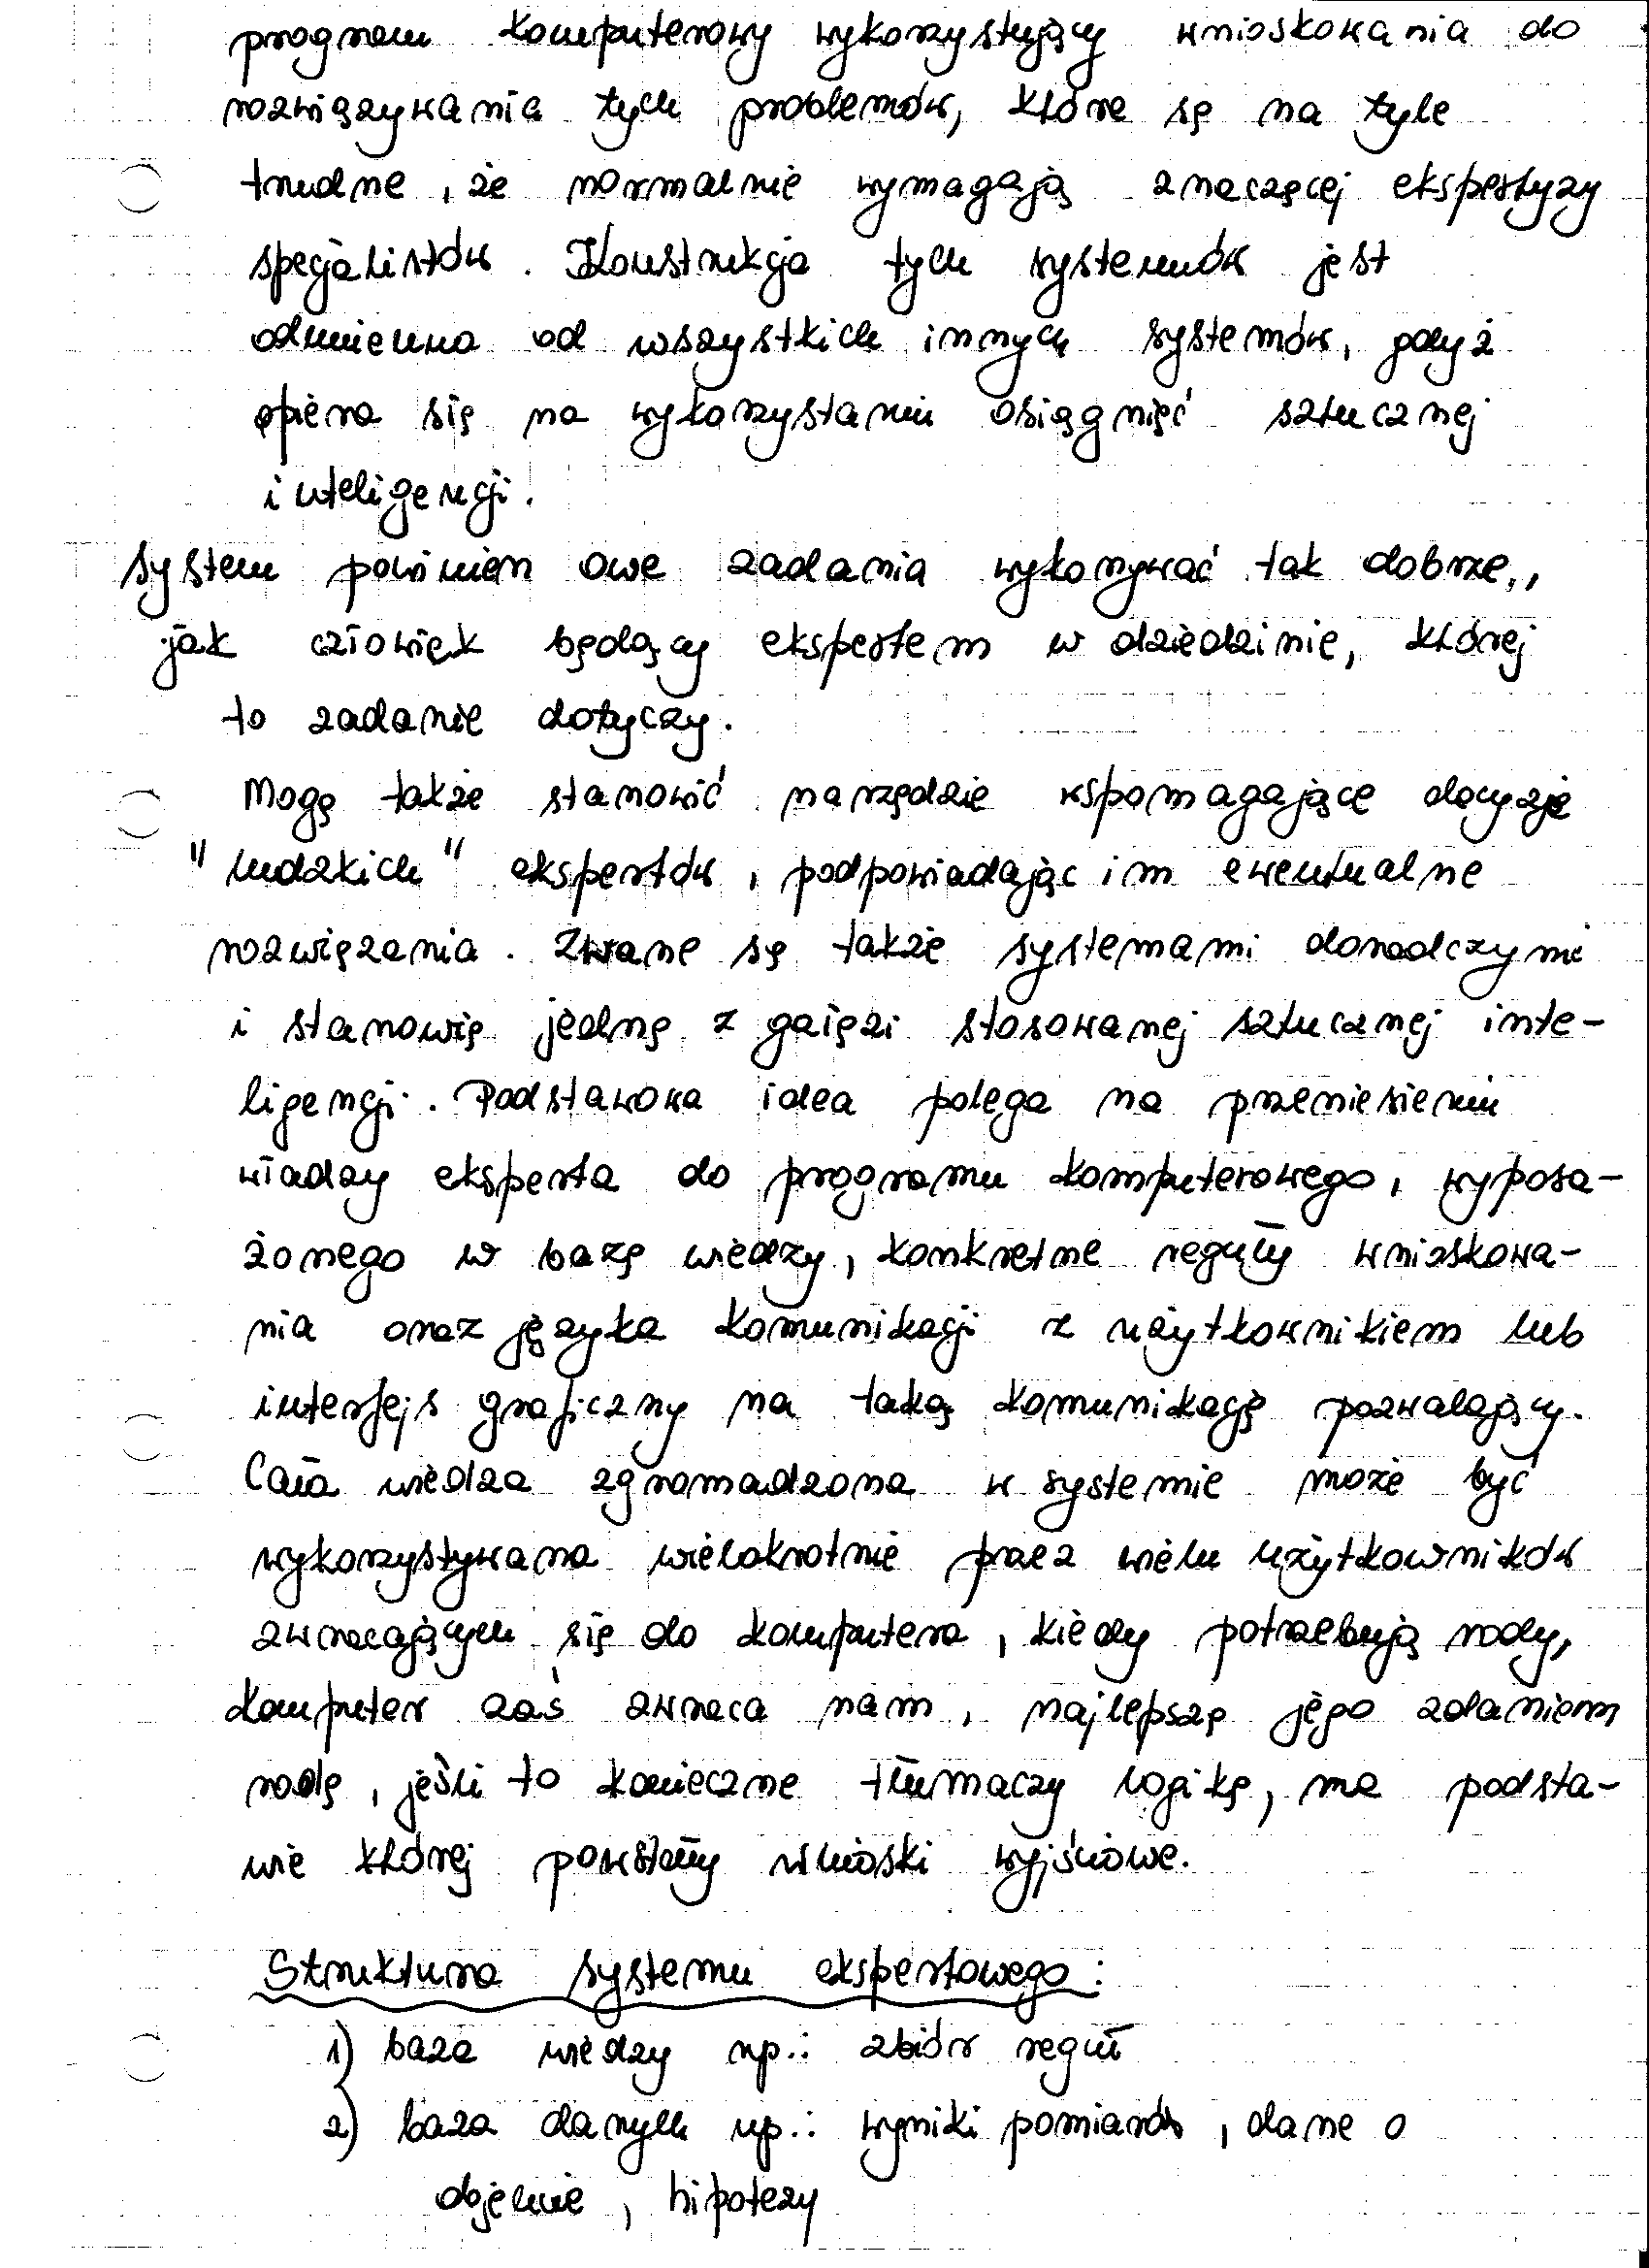 program komputerowy wykorzystujący wnioskowania do
rozwiązywania tych problemów, które są na tyle
trudne, że normalnie wymagają znaczącej ekspertyzy
specjalistów. Konstrukcja tych systemów jest
odmienna od wszystkich innych systemów, gdyż
opiera się na wykorzystaniu osiągnięć sztucznej
inteligencji.
System powinien owe zadania wykonywać tak dobrze,,
jak człowiek będący ekspertem w dziedzinie, której
to zadanie dotyczy.
Mogą także stanowić narzędzie wspomagające decyzje
"ludzkich" ekspertów, podpowiadając im ewentualne
rozwiązania. Zwane są także systemami doradczymi
i stanowią jedną z gałęzi stosowanej sztucznej inte-
ligencji. Podstawowa idea polega na przeniesieniu
wiadzy eksperta do programu komputerowego, wyposa-
żonego w bazę wiedzy, konkretne reguły wnioskowa-
nia oraz języka komunikacji z użytkownikiem lub
interfejs graficzny na taką komunikację pozwalający.
Cała wiedza zgromadzona w systemie może być
wykorzystywana wielokrotnie przez wielu użytkowników
zwracających się do komputera, kiedy potrzebują rady,
komputer zaś zwraca nam, najlepszą jego zdaniem
radę, jeśli to konieczne tłumaczy logikę, na podsta-
wie której powstały wnioski wyjściowe.
Struktura systemu ekspertowego:
1) baza wiedzy np.: zbiór reguł
2) baza danych np.: wyniki pomiarów, dane o
objekcie, hipotezy